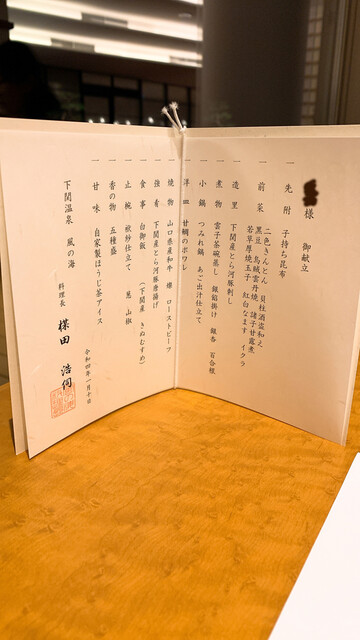 様 御献立
一 先附 子持ち昆布
一 前菜 二色きんとん 貝柱酒盗和え
黒豆 烏賊雲丹焼 諸子甘露煮
若草厚焼玉子 紅白なます イクラ
一 造里 下関産とら河豚刺し
一 煮物 雲子茶碗蒸し 銀餡掛け 銀杏 百合根
一 小鍋 つみれ鍋 あご出汁仕立て
一 洋皿 甘鯛のポワレ
一 焼物 山口県産和牛 ローストビーフ
一 強肴 下関産とら河豚唐揚げ
一 食事 白御飯 (下関産 きぬむすめ)
一 止椀 秋紗仕立て 葱 山椒
一 香の物 五種盛
一 甘味 自家製ほうじ茶アイス
令和四年一月十日
下関温泉 風の海
料理長 田 浩伺